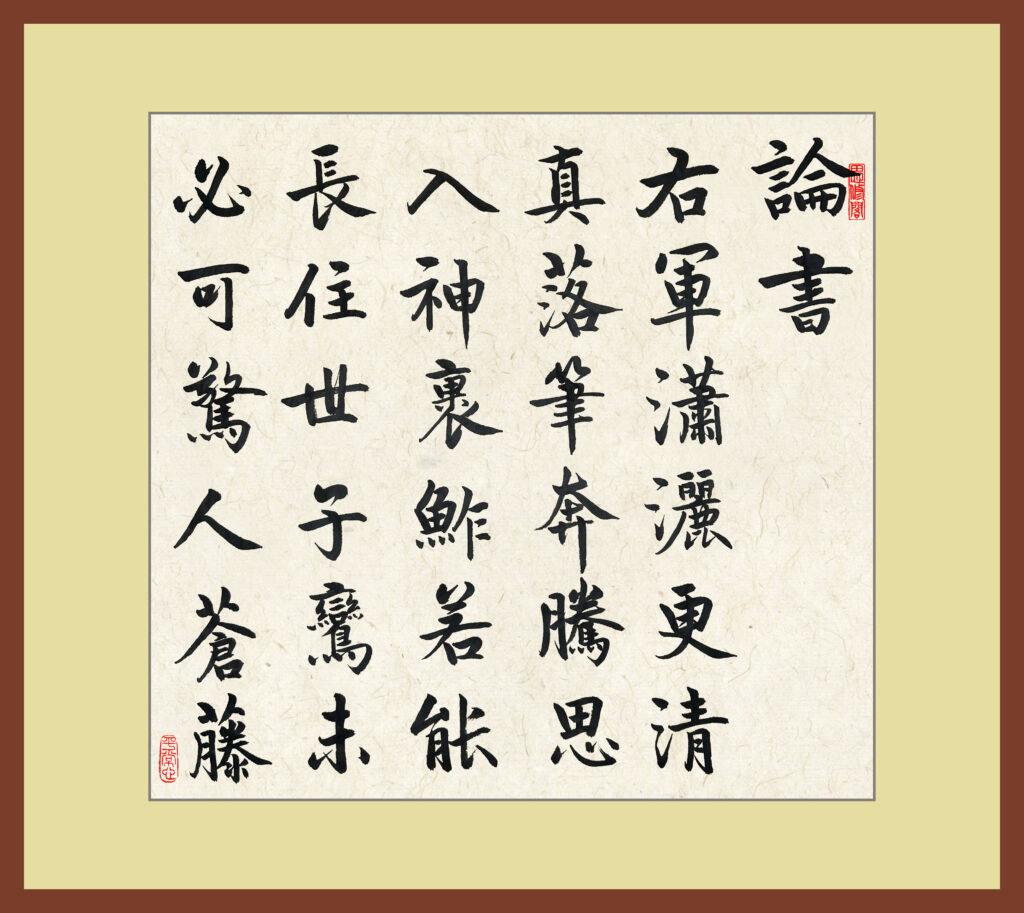 論書
思修閣
右軍瀟灑更清
真落筆奔騰思
入神裹鮓若能
長住世子鸞未
必可驚人蒼藤
平常心